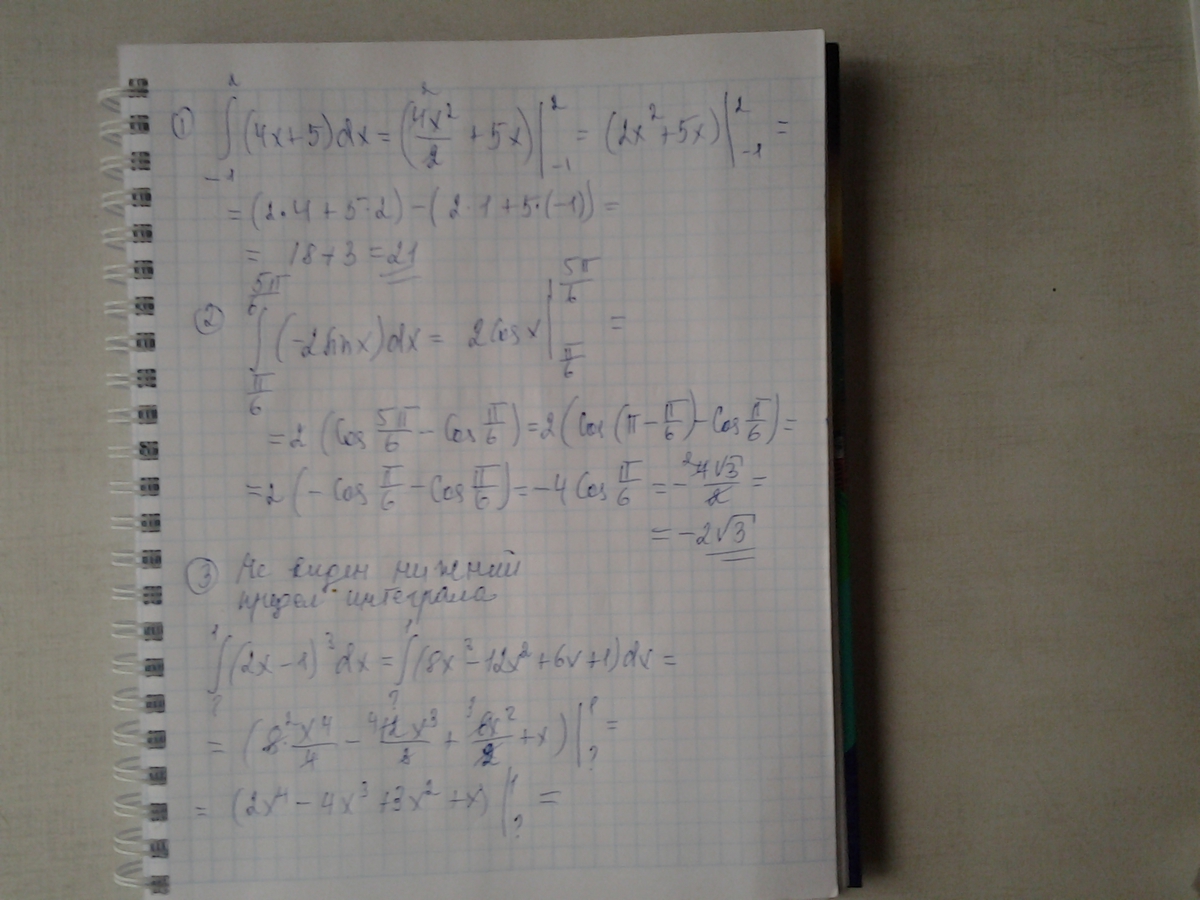 ① ∫₋₁² (4x+5)dx = (4x²/2 + 5x)|₋₁² = (2x²+5x)|₋₁² =
= (2·4+5·2)-(2·1+5·(-1)) =
= 18+3=21
② ∫_{π/6}^{5π/6} (-2sinx)dx = 2cosx|_{π/6}^{5π/6} =
=2(cos 5π/6 - cos π/6)=2(cos(π-π/6)-cos π/6)=
=2(-cos π/6 - cos π/6)=-4cos π/6 = -4√3/2 =
= -2√3
③ Не виден нижний
предел интеграла
∫_?^1 (2x-1)³dx = ∫_?^1 (8x³-12x²+6x+1)dx =
= (8·x⁴/4 - 12x³/3 + 6x²/2 + x)|_?^1 =
= (2x⁴-4x³+3x²+x)|_?^1 =